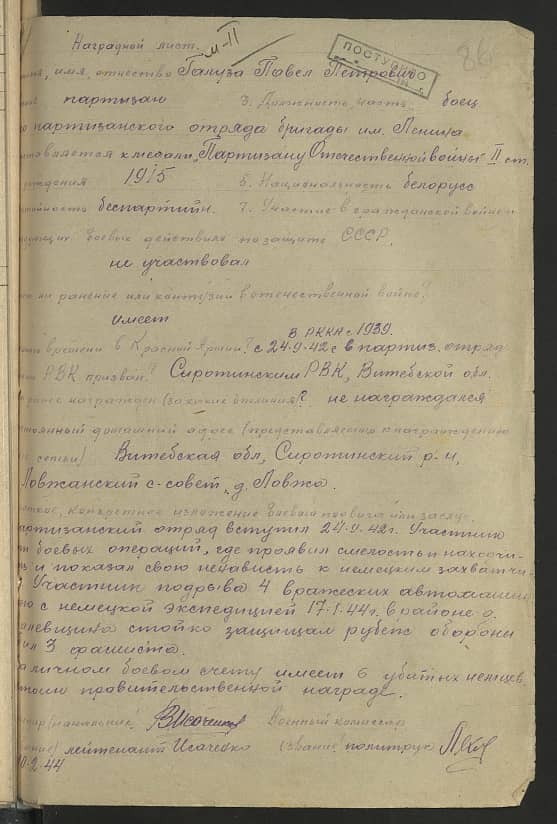 Наградной лист.
м-II
ПОСТУПИЛО
86
имя, отчество Галуза Павел Петрович
партизан 3. Должность, часть боец
партизанского отряда бригады им. Ленина
к медали, "Партизану Отечественной войны" II ст.
1915 6. Национальность белорусс
беспартийн. 7. Участие в гражданской войне и
боевых действиях по защите СССР.
не участвовал
ли ранение или контузии в отечественной войне?
имеет
в РККА с 1939.
времени в Красной Армии? с 24-9-42 г в партиз. отряд
РВК призван? Сиротинским РВК, Витебской обл.
награжден (за какие отличия)? не награждался
домашний адрес (представляемого к награждению
семьи) Витебская обл, Сиротинский р-н,
Ловжанский с-совет, д. Ловжа.
конкретное изложение боевого подвига или заслуг.
партизанский отряд вступил 24-9-42г. Участник
боевых операций, где проявил смелость и находчи-
и показал свою ненависть к немецким захватчи-
Участник подрыва 4 вражеских автомашин
с немецкой экспедицией 17.I.44г. в районе д.
стойко защищал рубеж обороны
3 фашиста.
личном боевом счету имеет 6 убитых немцев.
правительственной награде.
(начальник) Военный комиссар
лейтенант Исаченко (звание) политрук
2-44